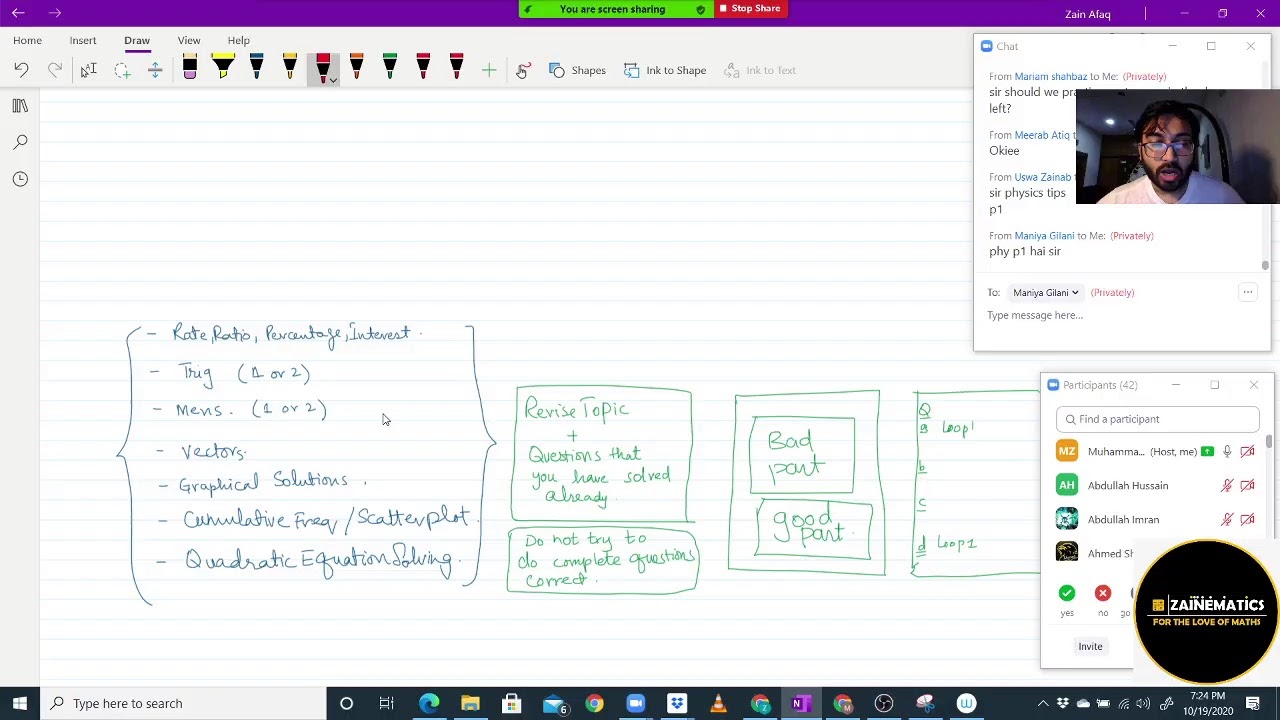 You are screen sharing
Stop Share
Zain Afaq
Home Insert Draw View Help
Shapes
Ink to Shape
Ink to Text
Chat
From Mariam shahbaz to Me: (Privately)
sir should we
left?
From Meerab Atiq
Okiee
From Uswa Zainab
sir physics tips
p1
From Maniya Gilani to Me: (Privately)
phy p1 hai sir
To: Maniya Gilani (Privately)
Type message here...
- Rate, Ratio, Percentage, Interest.
- Trig (1 or 2)
- Mens. (1 or 2)
- Vectors.
- Graphical Solutions.
- Cumulative Freq / Scatter plot.
- Quadratic Equation Solving.
Revise Topic
+
Questions that
you have solved
already.
Do not try to
do complete questions
correct.
Bad
part
good
part.
Q
a Loop1
b
c
d Loop1
Participants (42)
Find a participant
MZ Muhamma... (Host, me)
AH Abdullah Hussain
Abdullah Imran
Ahmed Sh
yes no go
Invite
ZAINEMATICS
FOR THE LOVE OF MATHS
Type here to search
7:24 PM
10/19/2020